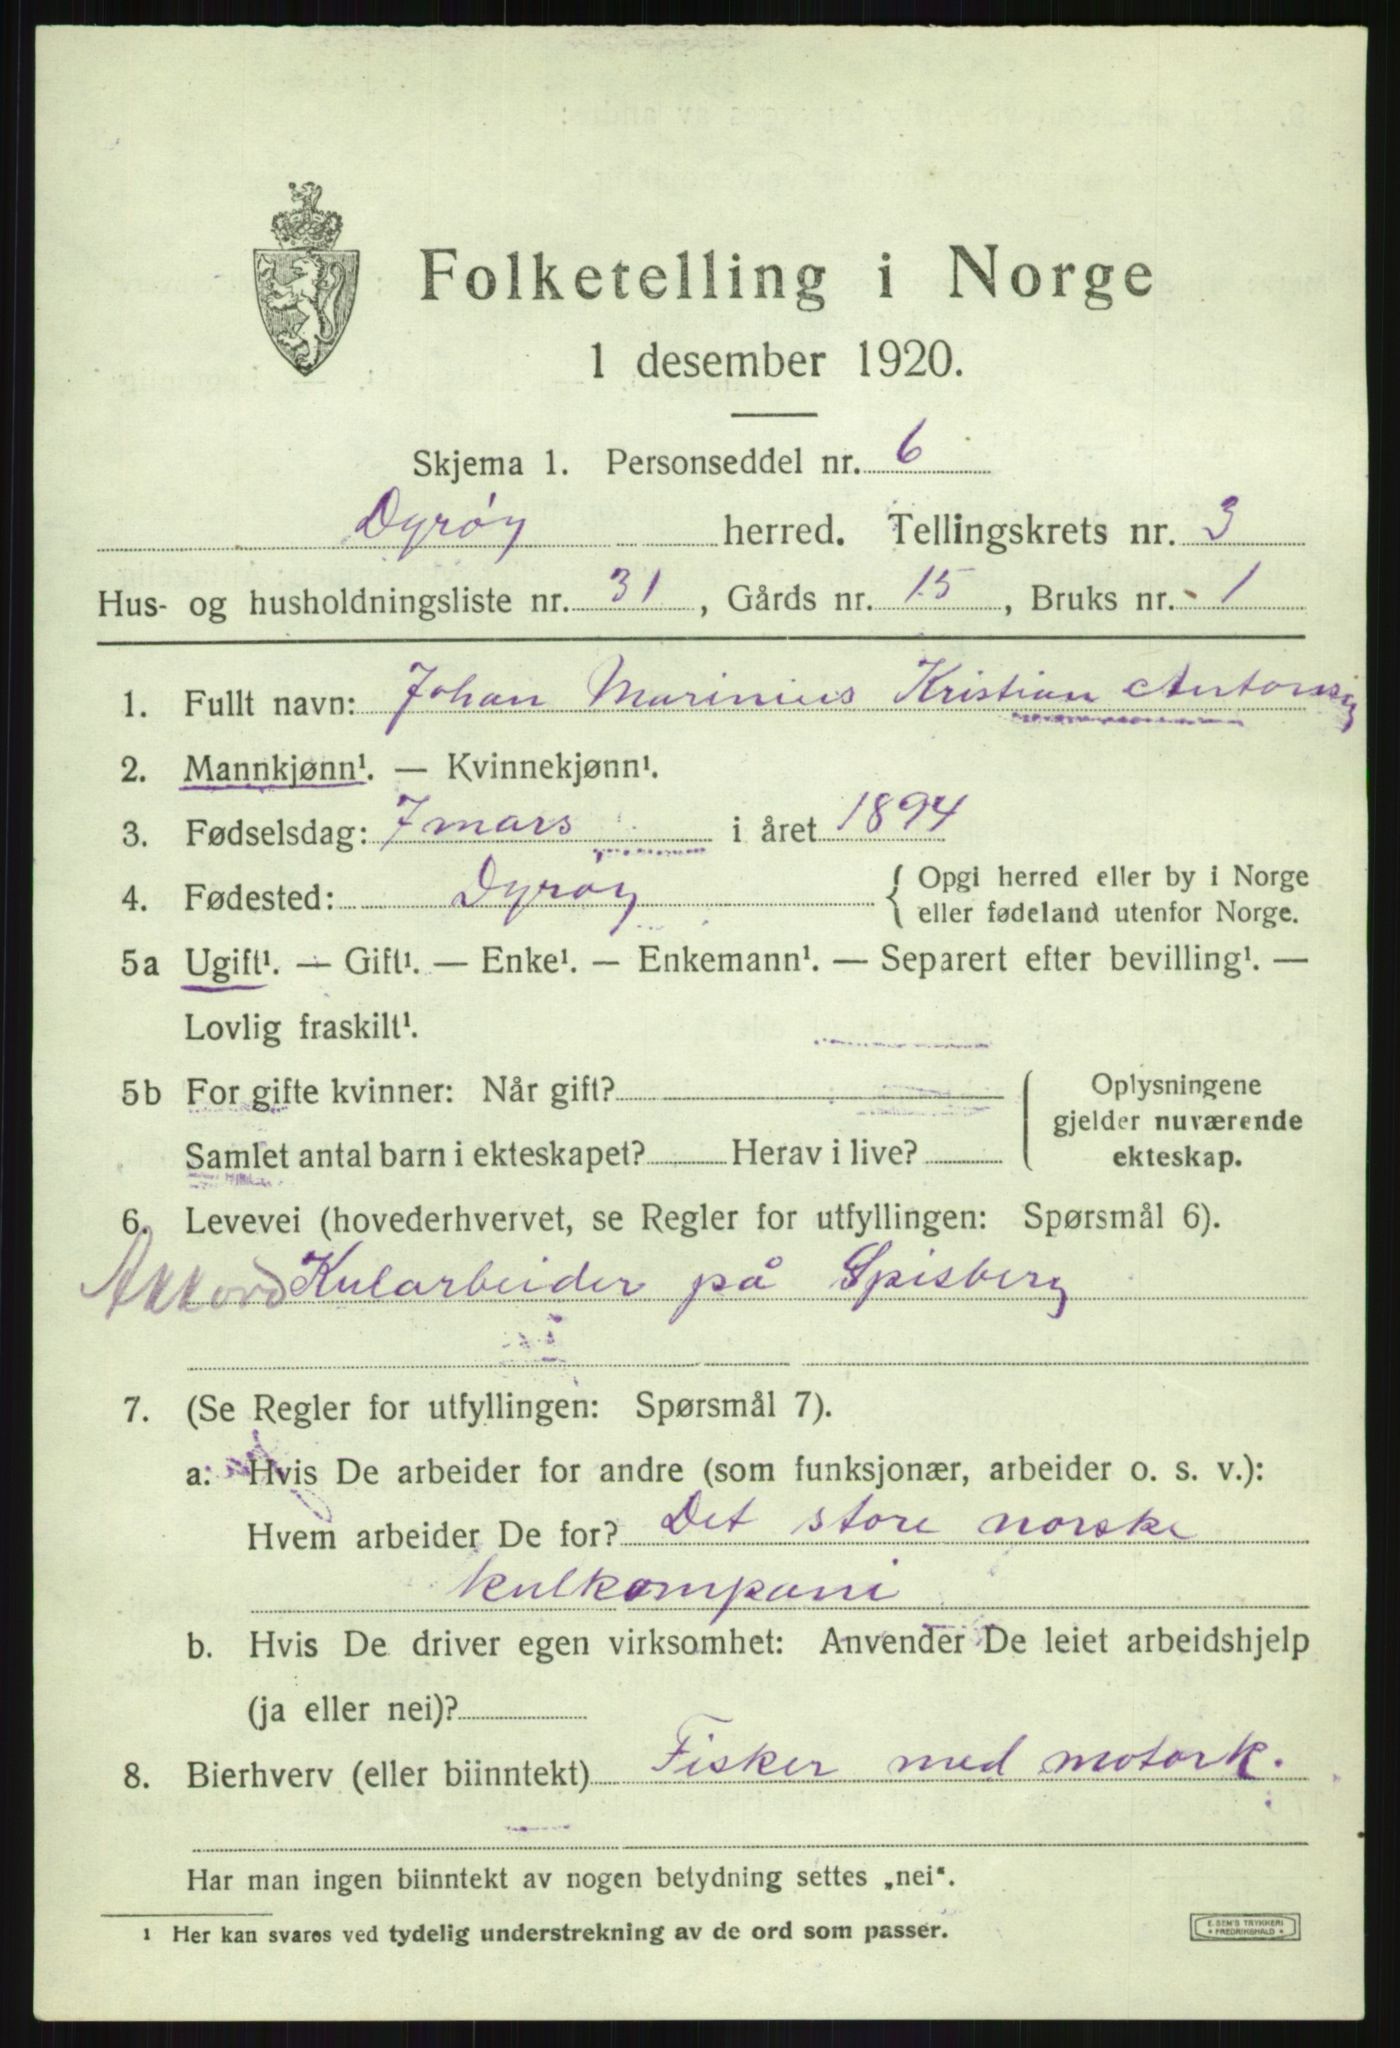 Folketelling i Norge
1 desember 1920.
Skjema 1. Personseddel nr. 6
Dyrøy herred. Tellingskrets nr. 3
Hus- og husholdningsliste nr. 31, Gårds nr. 15, Bruks nr. 1
1. Fullt navn: Johan Marinius Kristian
2. Mannkjønn¹. — Kvinnekjønn¹.
3. Fødselsdag: 7 mars i året 1894
4. Fødested: Dyrøy { Opgi herred eller by i Norge
eller fødeland utenfor Norge.
5a Ugift¹. — Gift¹. — Enke¹. — Enkemann¹. — Separert efter bevilling¹. —
Lovlig fraskilt¹.
5b For gifte kvinner: Når gift? Oplysningene
gjelder nuværende
Samlet antal barn i ekteskapet? Herav i live? ekteskap.
6. Levevei (hovederhvervet, se Regler for utfyllingen: Spørsmål 6).
Akkord Kularbeider på Spisberg
7. (Se Regler for utfyllingen: Spørsmål 7).
a: Hvis De arbeider for andre (som funksjonær, arbeider o. s. v.):
Hvem arbeider De for? Det store norske
kulkompani
b. Hvis De driver egen virksomhet: Anvender De leiet arbeidshjelp
(ja eller nei)?
8. Bierhverv (eller biinntekt) Fisker med motork.
Har man ingen biinntekt av nogen betydning settes „nei“.
¹ Her kan svares ved tydelig understrekning av de ord som passer.
E. SEM'S TRYKKERI
FREDRIKSHALD